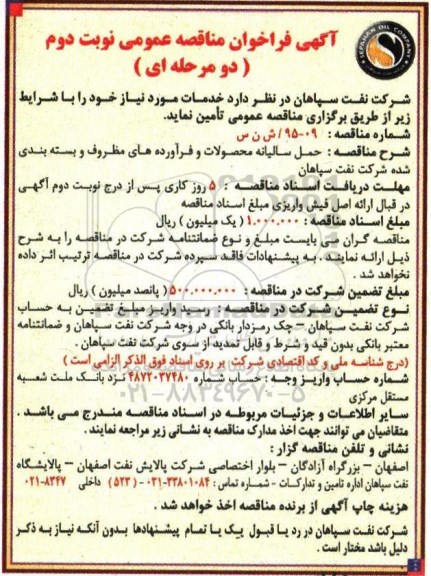 SEPAHAN OIL COMPANY
آگهی فراخوان مناقصه عمومی نوبت دوم
( دو مرحله ای )
شرکت نفت سپاهان در نظر دارد خدمات مورد نیاز خود را با شرایط
زیر از طریق برگزاری مناقصه عمومی تأمین نماید.
شماره مناقصه : ۰۹-۹۵/ ش ن س
شرح مناقصه : حمل سالیانه محصولات و فرآورده های مظروف و بسته بندی
شده شرکت نفت سپاهان
مهلت دریافت اسناد مناقصه : ۵ روز کاری پس از درج نوبت دوم آگهی
در قبال ارائه اصل فیش واریزی مبلغ اسناد مناقصه
مبلغ اسناد مناقصه : ۱.۰۰۰.۰۰۰ ( یک میلیون ) ریال
مناقصه گران می بایست مبلغ و نوع ضمانتنامه شرکت در مناقصه را به شرح
ذیل ارائه نمایند . به پیشنهادات فاقد سپرده شرکت در مناقصه ترتیب اثر داده
نخواهد شد .
مبلغ تضمین شرکت در مناقصه : ۵۰۰.۰۰۰.۰۰۰ ( پانصد میلیون ) ریال
نوع تضمین شرکت در مناقصه : رسید واریز مبلغ تضمین به حساب
شرکت نفت سپاهان – چک رمزدار بانکی در وجه شرکت نفت سپاهان و ضمانتنامه
معتبر بانکی بدون قید و شرط و قابل تمدید از سوی شرکت نفت سپاهان .
(درج شناسه ملی و کد اقتصادی شرکت بر روی اسناد فوق الذکر الزامی است )
شماره حساب واریز وجه : حساب شماره ۴۸۷۲۰۳۷۴۸۰ نزد بانک ملت شعبه
مستقل مرکزی
۰۲۱-۸۸۳۴۹۶۷۰-۵
سایر اطلاعات و جزئیات مربوطه در اسناد مناقصه مندرج می باشد .
متقاضیان می توانند جهت اخذ مدارک مناقصه به نشانی زیر مراجعه نمایند .
نشانی و تلفن مناقصه گزار :
اصفهان – بزرگراه آزادگان – بلوار اختصاصی شرکت پالایش نفت اصفهان – پالایشگاه
نفت سپاهان اداره تامین و تدارکات - شماره تماس : ۳۳۸۰۱۰۸۴-۰۳۱ - ( ۵۲۳ ) داخلی ۸۳۴۷-۰۲۱
هزینه چاپ آگهی از برنده مناقصه اخذ خواهد شد .
شرکت نفت سپاهان در رد یا قبول یک یا تمام پیشنهادها بدون آنکه نیاز به ذکر
دلیل باشد مختار است .